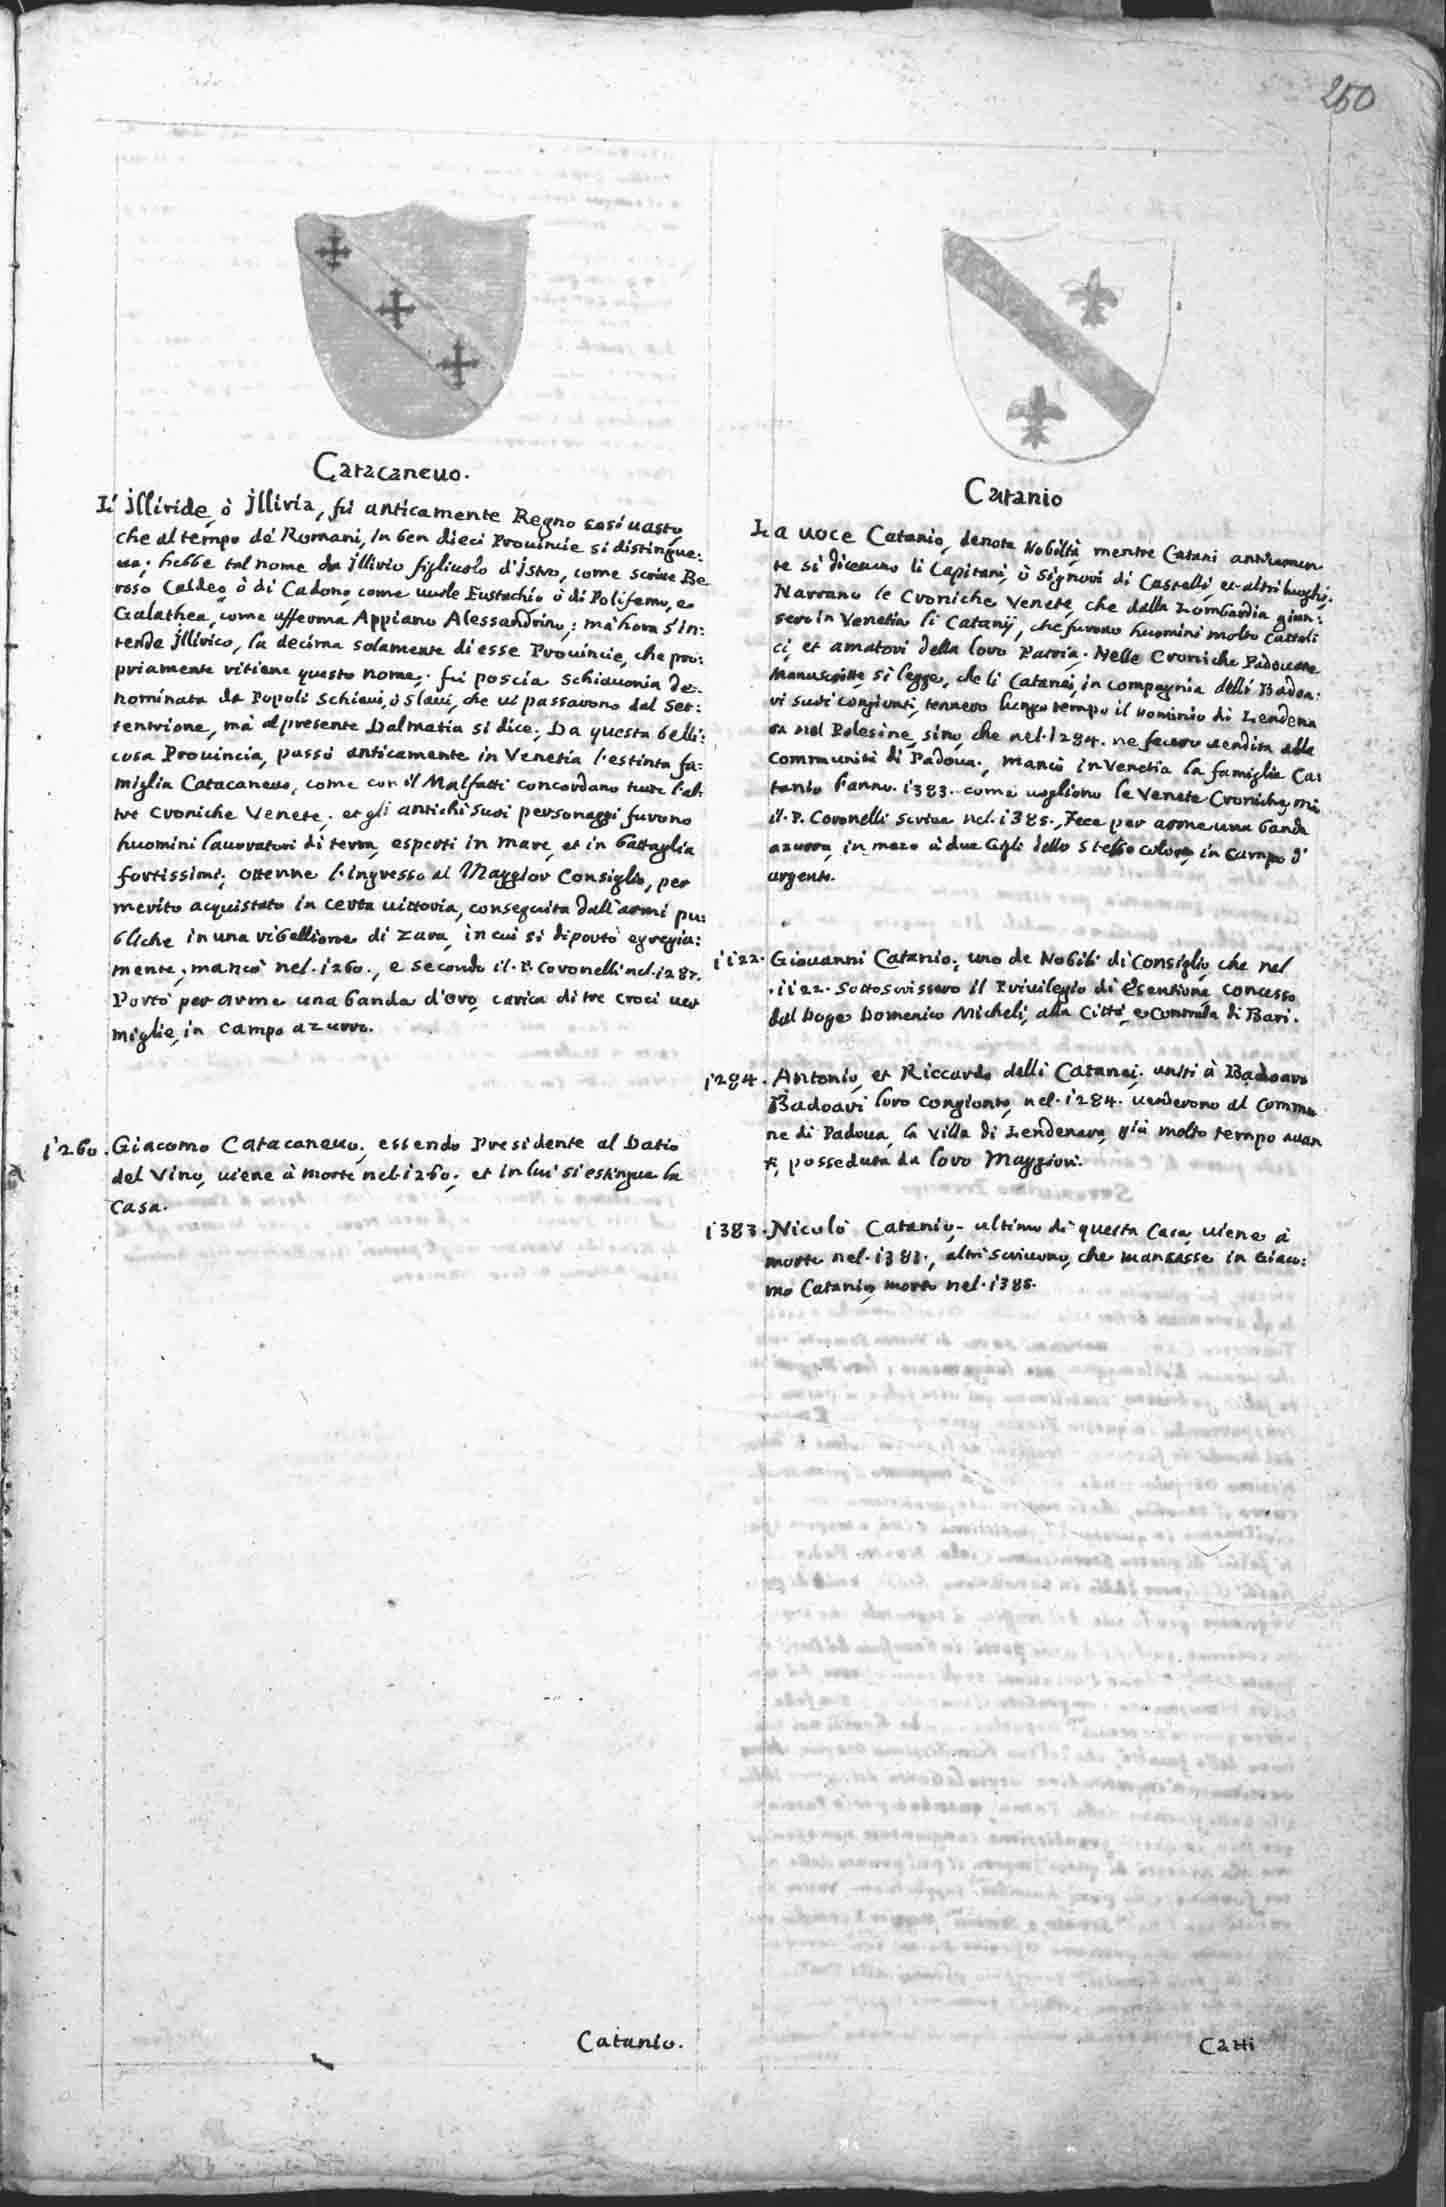 250
Catacaneuo.
L' jlliride, ò jlliria, fù anticamente Regno così uasto,
che al tempo de' Romani, in ben dieci Prouincie si distingue:
ua; hebbe tal nome da jllirio figliuolo d'jstro, come scriue Be
roso Caldeo, ò di Cadmo, come uuole Eustachio ò di Polifemo, e
Galathea, come afferma Appiano Alessandrino; mà hora s'in:
tende jllirico, la decima solamente di esse Prouincie, che pro:
priamente ritiene questo nome; fù poscia Schiauonia de:
nominata da Popoli Schiaui, ò Slaui, che ui passarono dal Set:
tentrione, mà al presente Dalmatia si dice; Da questa belli:
cosa Prouincia, passò anticamente in Venetia l'estinta fa:
miglia Catacaneuo, come con il Malfatti concordano tutte l'al:
tre Croniche Venete; et gli antichi suoi personaggi furono
huomini lauoratori di terra, esperti in mare, et in battaglia
fortissimi; ottenne l'ingresso al Maggior Consiglio, per
merito acquistato in certa uittoria, conseguita dall'armi pu:
bliche in una ribellione di Zara, in cui si diportò egregia:
mente; mancò nel .1260., e secondo il .P. Coronelli nel .1287.
Portò per arme una banda d'oro, carica di tre croci uer
miglie, in campo azurro.
1260. Giacomo Catacaneuo, essendo Presidente al Datio
del Vino, uiene à morte nel .1260.; et in lui si estingue la
Casa.
Catanio.
Catanio
La uoce Catanio, denota Nobiltà, mentre Catani anticamen
te si diceuano li Capitani, ò Signori di Castelli, et altri luoghi.
Narrano le Croniche Venete, che dalla Lombardia giun:
sero in Venetia li Catanij, che furono huomini molto Cattoli
ci, et amatori della loro Patria. Nelle Croniche Padouane
Manuscritte si legge, che li Catanei, in compagnia delli Badoa:
ri suoi congionti, tennero lungo tempo il Dominio di Lendena
ra nel Polesine, sino, che nel .1284. ne fecero uendita alla
Communità di Padoua., mancò in Venetia la famiglia Ca:
tanio l'anno .1383. come uogliono le Venete Croniche, mà
il .P. Coronelli scriue nel .1385., Fece per arme una banda
azurra, in mezo à due Gigli dello stesso colore, in campo d'
argento.
1122. Giouanni Catanio, uno de Nobili di Consiglio, che nel
.1122. sottoscrissero il Priuilegio di Esentione, concesso
dal Doge Domenico Micheli, alla Città, e Contrada di Bari.
1284. Antonio, et Riccardo delli Catanei, uniti à Badoaro
Badoari loro congionto, nel .1284. uenderono al Commu
ne di Padoua, la Villa di Lendenara, già molto tempo auan
ti, posseduta da loro Maggiori.
1383. Nicolò Catanio, ultimo di questa Casa, uiene à
morte nel .1383., altri scriuono, che mancasse in Giaco:
mo Catanio, morto nel .1385.
Catti